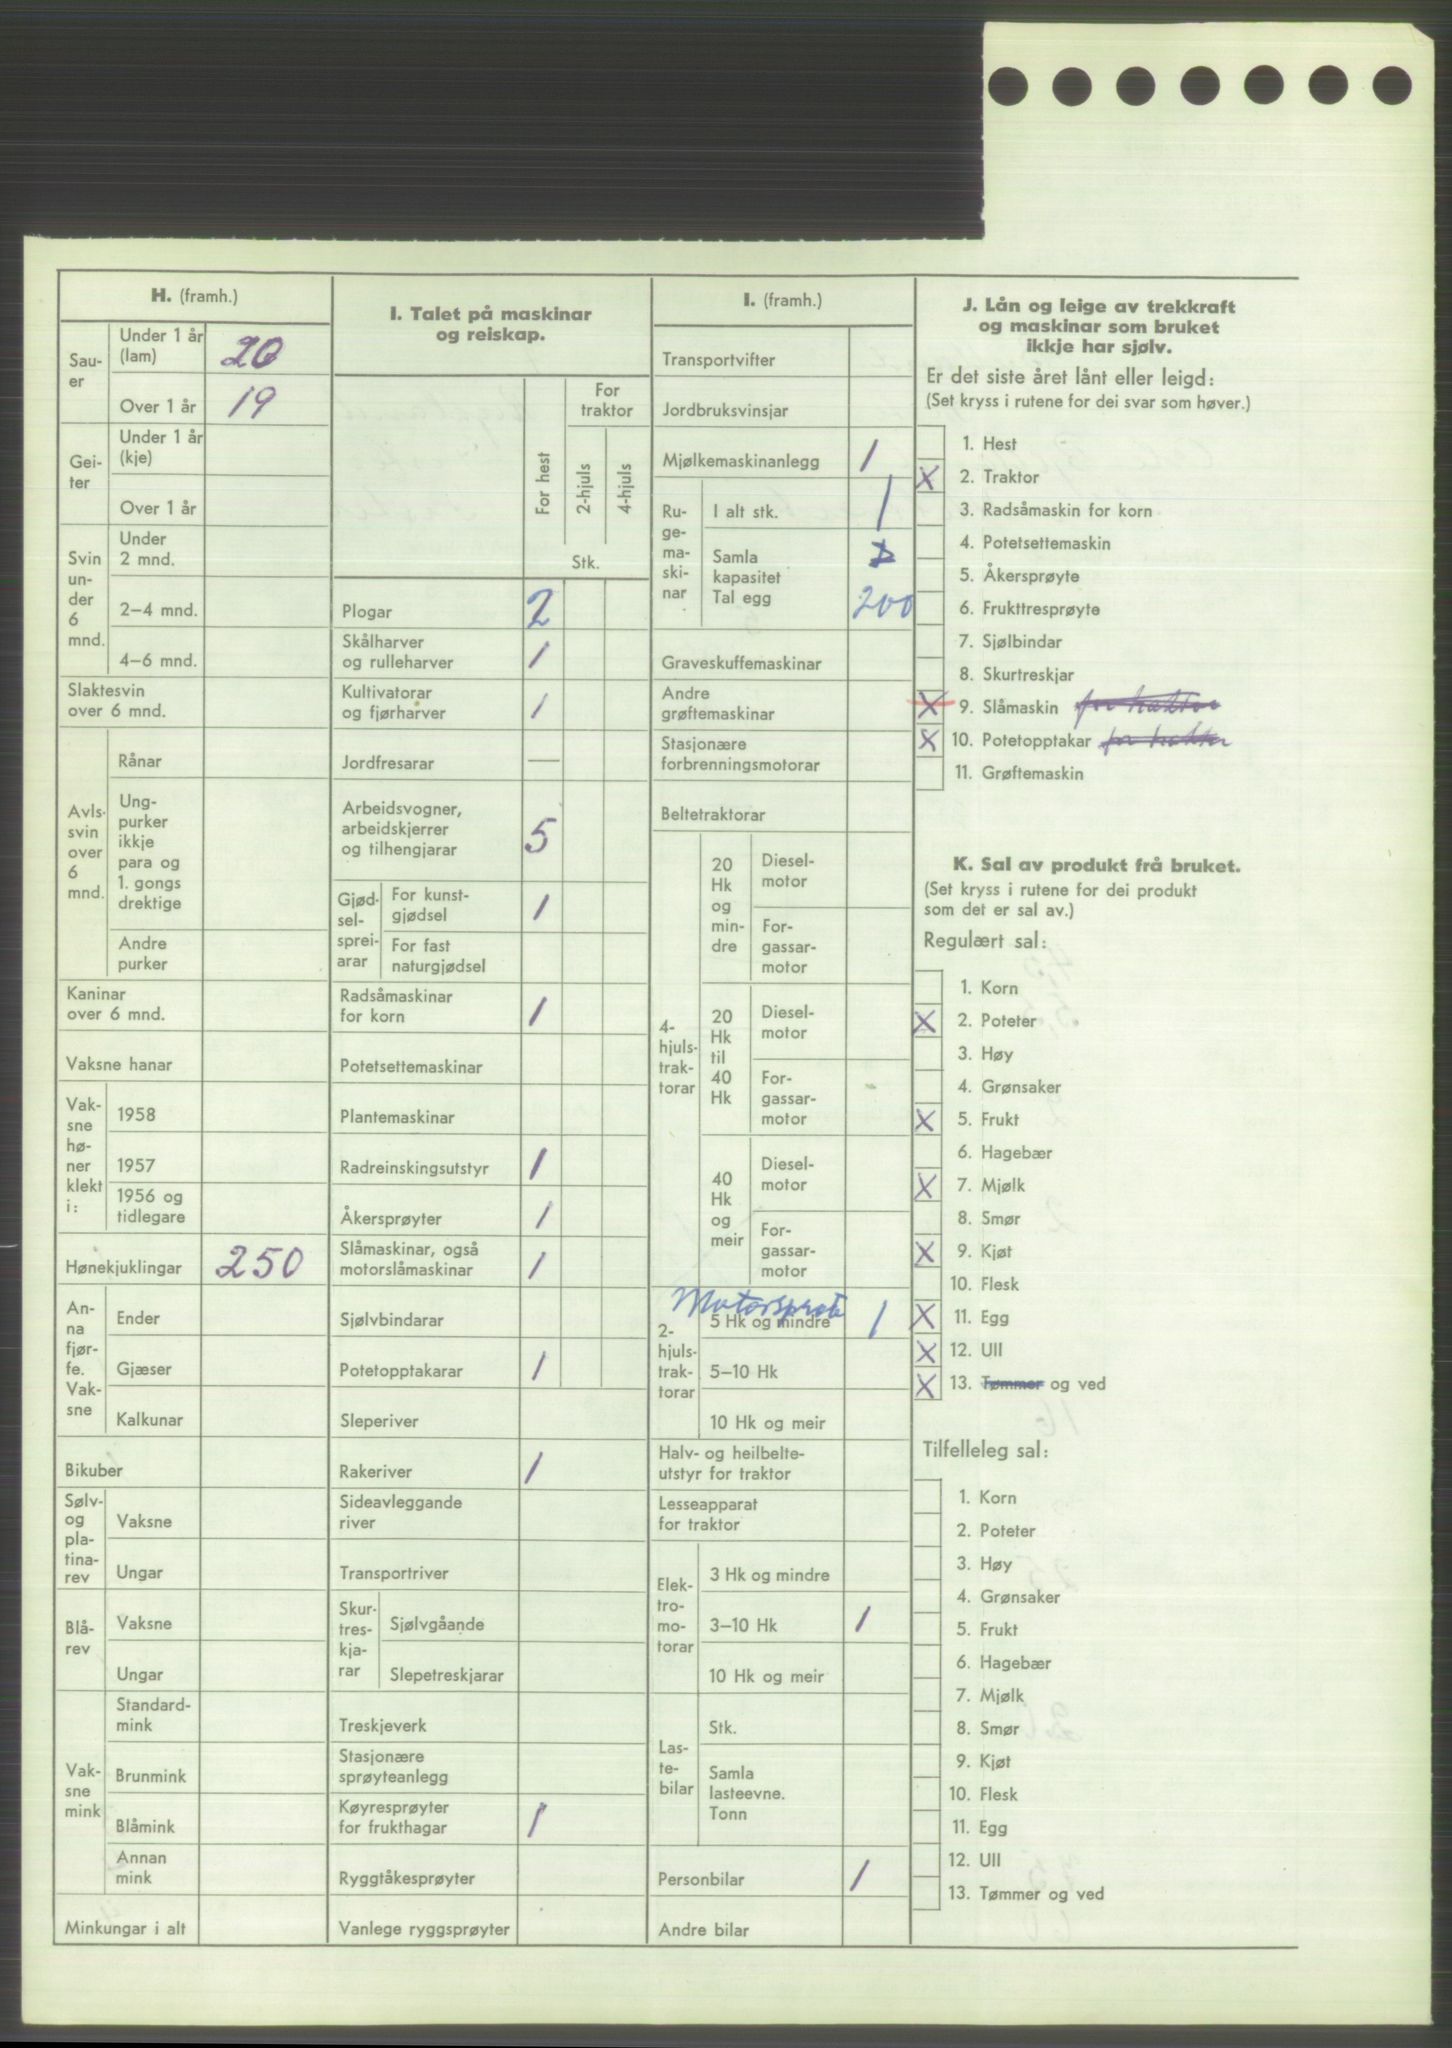 H. (framh.)
Sau-
er
Under 1 år
(lam)
20
Over 1 år
19
Gei-
ter
Under 1 år
(kje)
Over 1 år
Svin
un-
der
6
mnd.
Under
2 mnd.
2–4 mnd.
4–6 mnd.
Slaktesvin
over 6 mnd.
Avls-
svin
over
6
mnd.
Rånar
Ung-
purker
ikkje
para og
1. gongs
drektige
Andre
purker
Kaninar
over 6 mnd.
Vaksne hanar
Vak-
sne
hø-
ner
klekt
i:
1958
1957
1956 og
tidlegare
Hønekjuklingar
250
An-
na
fjør-
fe.
Vak-
sne
Ender
Gjæser
Kalkunar
Bikuber
Sølv-
og
pla-
tina-
rev
Vaksne
Ungar
Blå-
rev
Vaksne
Ungar
Vak-
sne
mink
Standard-
mink
Brunmink
Blåmink
Annan
mink
Minkungar i alt
I. Talet på maskinar
og reiskap.
For hest
For
traktor
2-hjuls
4-hjuls
Stk.
Plogar
2
Skålharver
og rulleharver
1
Kultivatorar
og fjørharver
1
Jordfresarar
—
Arbeidsvogner,
arbeidskjerrer
og tilhengjarar
5
Gjød-
sel-
sprei-
arar
For kunst-
gjødsel
1
For fast
naturgjødsel
Radsåmaskinar
for korn
1
Potetsettemaskinar
Plantemaskinar
Radreinskingsutstyr
1
Åkersprøyter
1
Slåmaskinar, også
motorslåmaskinar
1
Sjølvbindarar
Potetopptakarar
1
Sleperiver
Rakeriver
1
Sideavleggande
river
Transportriver
Skur-
tres-
kja-
rar
Sjølvgåande
Slepetreskjarar
Treskjeverk
Stasjonære
sprøyteanlegg
Køyresprøyter
for frukthagar
1
Ryggtåkesprøyter
Vanlege ryggsprøyter
I. (framh.)
Transportvifter
Jordbruksvinsjar
Mjølkemaskinanlegg
1
Ru-
ge-
ma-
ski-
nar
I alt stk.
1
Samla
kapasitet
Tal egg
200
Graveskuffemaskinar
Andre
grøftemaskinar
Stasjonære
forbrenningsmotorar
Beltetraktorar
4-
hjuls-
trak-
torar
20
Hk
og
min-
dre
Diesel-
motor
For-
gassar-
motor
20
Hk
til
40
Hk
Diesel-
motor
For-
gassar-
motor
40
Hk
og
meir
Diesel-
motor
For-
gassar-
motor
2-
hjuls-
trak-
torar
5 Hk og mindre
1
5–10 Hk
10 Hk og meir
Halv- og heilbelte-
utstyr for traktor
Lesseapparat
for traktor
Elek-
tro-
mo-
torar
3 Hk og mindre
3–10 Hk
1
10 Hk og meir
Las-
te-
bilar
Stk.
Samla
lasteevne.
Tonn
Personbilar
1
Andre bilar
J. Lån og leige av trekkraft
og maskinar som bruket
ikkje har sjølv.
Er det siste året lånt eller leigd:
(Set kryss i rutene for dei svar som høver.)
1. Hest
X 2. Traktor
3. Radsåmaskin for korn
4. Potetsettemaskin
5. Åkersprøyte
6. Frukttresprøyte
7. Sjølbindar
8. Skurtreskjar
X 9. Slåmaskin for traktor
X 10. Potetopptakar for traktor
11. Grøftemaskin
K. Sal av produkt frå bruket.
(Set kryss i rutene for dei produkt
som det er sal av.)
Regulært sal:
1. Korn
X 2. Poteter
3. Høy
4. Grønsaker
X 5. Frukt
6. Hagebær
X 7. Mjølk
8. Smør
X 9. Kjøt
10. Flesk
X 11. Egg
X 12. Ull
X 13. Tømmer og ved
Tilfelleleg sal:
1. Korn
2. Poteter
3. Høy
4. Grønsaker
5. Frukt
6. Hagebær
7. Mjølk
8. Smør
9. Kjøt
10. Flesk
11. Egg
12. Ull
13. Tømmer og ved